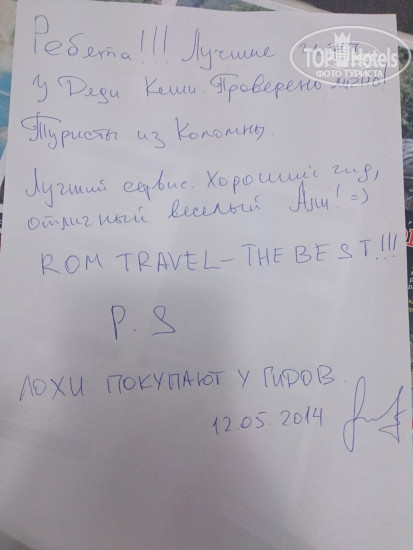 Ребята!!! Лучшие
TOPHotels
ФОТО ТУРИСТА
У Деди Кеши. Проверено лично!
Туристы из Коломны.
Лучший сервис. Хороший гид,
отличный веселый Али! =)
ROM TRAVEL – THE BEST!!!
P. S
ЛОХИ ПОКУПАЮТ У ГИДОВ.
12.05.2014